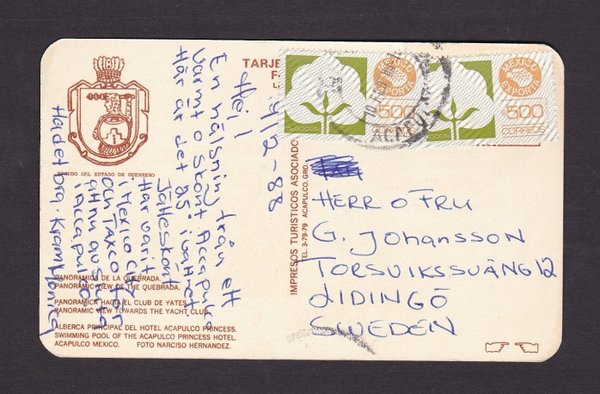 TARJE
ESCUDO DEL ESTADO DE GUERRERO
PANORAMICA DE LA QUEBRADA.
PANORAMIC VIEW OF THE QUEBRADA.
PANORAMICA HACIA EL CLUB DE YATES.
PANORAMIC VIEW TOWARDS THE YACHT CLUB.
ALBERCA PRINCIPAL DEL HOTEL ACAPULCO PRINCESS.
SWIMMING POOL OF THE ACAPULCO PRINCESS HOTEL.
ACAPULCO MEXICO. FOTO NARCISO HERNANDEZ.
/12-88
Hej!
En hälsning från ett
varmt o skönt Accapulco
Här är det 85° i vattnet
Jätteskönt
Har varit
i Mexico City
och TAXCO för
att nu avsluta
i Accapulco
Ha det bra. Kram Monica
IMPRESOS TURISTICOS ASOCIADO
TEL. 3-79-79 ACAPULCO, GRO.
MEXICO
EXPORTA
500
CORREOS
MEXICO
EXPORTA
500
CORREOS
ACAPUL
HERR O FRU
G. Johansson
TORSVIKSSVÄNG 12
LIDINGÖ
SWEDEN